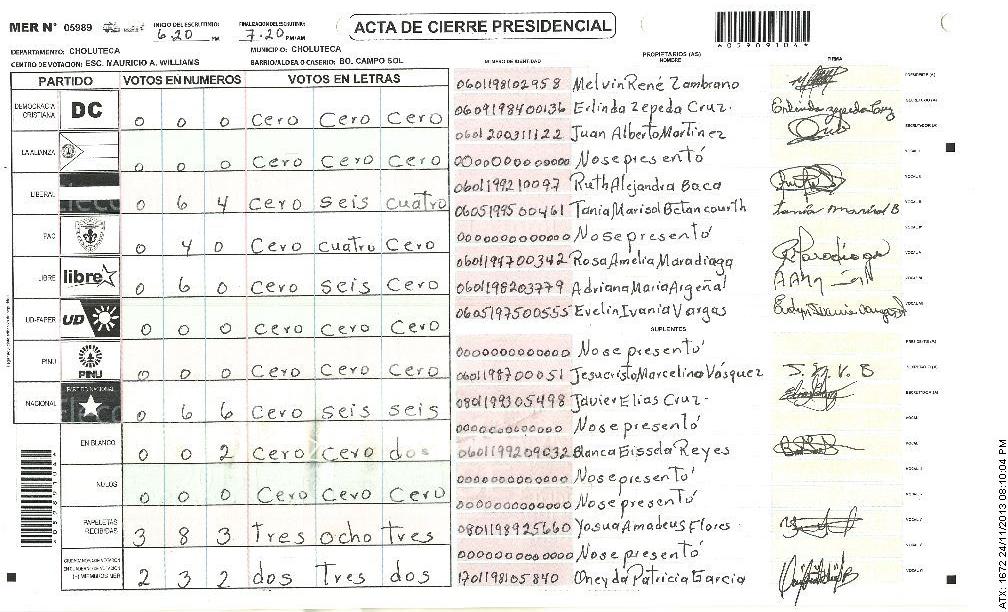 MER N° 05989 INICIO DEL ESCRUTINIO: 6.20 PM FINALIZACION DEL ESCRUTINIO: 7.20 PM/AM ACTA DE CIERRE PRESIDENCIAL
A05909104A
DEPARTAMENTO: CHOLUTECA MUNICIPIO: CHOLUTECA
CENTRO DE VOTACION: ESC. MAURICIO A. WILLIAMS BARRIO/ALDEA O CASERIO: BO. CAMPO SOL
PARTIDO VOTOS EN NUMEROS VOTOS EN LETRAS
DEMOCRACIA CRISTIANA DC 0 0 0 Cero Cero Cero
LA ALIANZA 0 0 0 Cero Cero Cero
LIBERAL 0 6 4 Cero seis cuatro
PAC 0 4 0 Cero cuatro Cero
LIBRE libre 0 6 0 Cero seis Cero
UD-FAPER UD 0 0 0 Cero Cero Cero
PINU PINU 0 0 0 Cero Cero Cero
NACIONAL PARTIDO NACIONAL 0 6 6 Cero seis seis
EN BLANCO 0 0 2 Cero Cero dos
NULOS 0 0 0 Cero Cero Cero
PAPELETAS RECIBIDAS 3 8 3 Tres ocho Tres
2 3 2 dos Tres dos
NUMERO DE IDENTIDAD PROPIETARIOS (AS) NOMBRE FIRMA
0601198102958 Melvin René Zambrano PRESIDENTE (A)
0609198400136 Erlinda Zepeda Cruz. Erlinda Zepeda Cruz SECRETARIO (A)
0601200311122 Juan Alberto Martinez ESCRUTADOR (A)
0000000000000 No se presentó
0601199210097 Ruth Alejandra Baca
0605199500461 Tania Marisol Betancourth Tania Marisol B
0000000000000 No se presentó
0601197700342 Rosa Amelia Maradiaga
0601198203779 Adriana Maria Argeñal
0605197500555 Evelin Ivania Vargas
SUPLENTES
0000000000000 No se presentó
0601198700051 Jesucristo Marcelino Vásquez
0801199305498 Javier Elias Cruz.
0000000000000 No se presentó
0601199209032 Blanca Gissela Reyes
0000000000000 No se presentó
0000000000000 No se presentó
0801198925660 Yosua Amadeus Flores
0000000000000 No se presentó
1701198105840 Oneyda Patricia Garcia
ATX: 1672 24/11/2013 08:10:04 PM